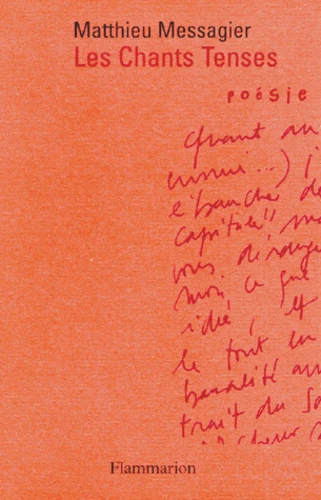 Matthieu Messagier
Les Chants Tenses
poésie
Quant au
l'ébauche de
capitale",
vous dérange
moi, ce que
idée, et
le tout en
banalité au
trait du Sa
Flammarion